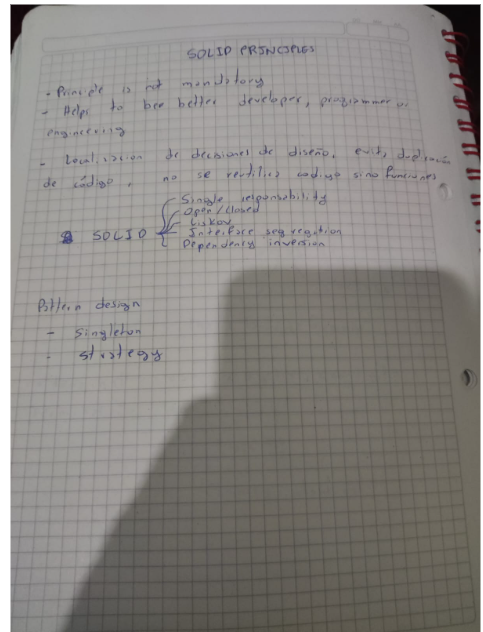 SOLID PRINCIPLES
- Principle is not mandatory
- Helps to bee better developer, programmer or
engineering
- Localización de decisiones de diseño, evita duplicación
de código, no se reutiliza codigo sino funciones
SOLID
Single responsability
Open/closed
Liskov
Interface segregation
Dependency inversion
Pattern design
- Singleton
- strategy